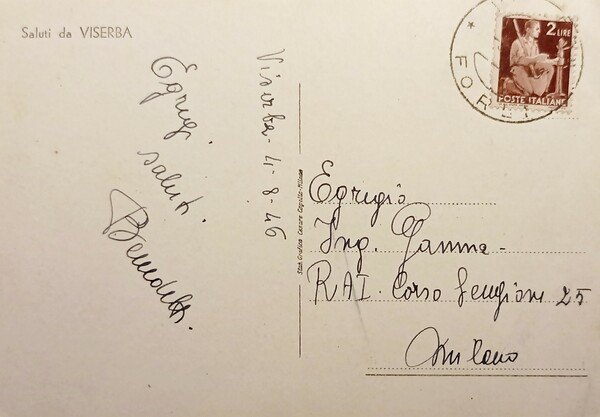 Saluti da VISERBA
Viserba - 4-8-46
Egregi
saluti.
Benedetti.
Stab. Grafico Cesare Capello-Milano
2 LIRE
POSTE ITALIANE
FORLI
Egregio
Ing. Gamma-
RAI. Corso Sempione 25
Milano